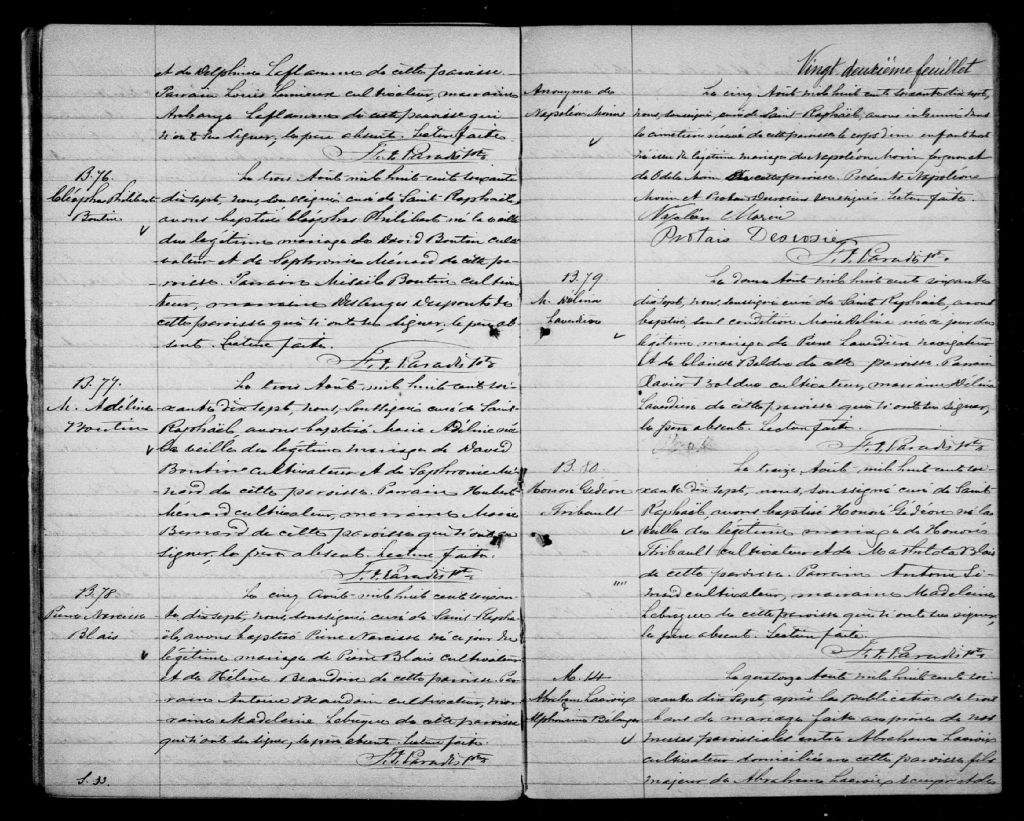 et de Delphine Laflamme de cette paroisse.
Parrain Louis Lemieux cultivateur, marraine
Laflamme de cette paroisse qui
n'ont su signer, le père absent. Lecture faite
Paradis Ptre
B.76.
Cléophas Philibert
Boutin
Le trois Août mil huit cent soixante
dix sept, nous, soussigné curé de Saint Raphaël,
avons baptisé Cléophas Philibert né la veille
du légitime mariage de David Boutin culti-
vateur et de Sophronie Ménard de cette pa-
roisse. Parrain Misaël Boutin cultiva-
teur, marraine Desanges de
cette paroisse qui n'ont su signer, le père ab-
sent. Lecture faite.
Paradis Ptre
B.77.
M. Adéline
Boutin
Le trois Août mil huit cent soi-
xante dix sept, nous, soussigné curé de Saint-
Raphaël, avons baptisé Marie Adéline née
la veille du légitime mariage de David
Boutin cultivateur et de Sophronie Mé-
nard de cette paroisse. Parrain Hubert
Ménard cultivateur, marraine Marie
Bernard de cette paroisse qui n'ont su
signer, le père absent. Lecture faite.
Paradis Ptre
B.78.
Pierre Narcisse
Blais
Le cinq Août mil huit cent soixan-
te dix sept, nous, soussigné curé de Saint Rapha-
ël, avons baptisé Pierre Narcisse né ce jour du
légitime mariage de Pierre Blais cultivateur
et de Hélène Beaudoin de cette paroisse. Par-
rain Antoine Beaudoin cultivateur, mar-
raine Madeleine Labrecque de cette paroisse
qui n'ont su signer, le père absent. Lecture faite.
Paradis Ptre
S.
Vingt deuxième feuillet
Anonyme de
Napoléon Morin
Le cinq Août mil huit cent soixante dix sept,
nous, soussigné, curé de Saint Raphaël, avons inhumé dans
le cimetière de cette paroisse le corps d'un enfant mort
né issu du légitime mariage de Napoléon Morin et
de Odile Morin de cette paroisse. Présents Napoléon
Morin et Protais Desrosiers soussignés. Lecture faite.
Napoléon Morin
Protais Desrosier
Paradis Ptre
B.79
M. Délina
Laverdière
Le Août mil huit cent soixante
dix sept, nous, soussigné curé de Saint Raphaël, avons
baptisé, sous condition Marie Délina née ce jour du
légitime mariage de Pierre Laverdière navigateur
et de Clarisse de cette paroisse. Parrain
Xavier cultivateur, marraine Délina
Laverdière de cette paroisse qui n'ont su signer,
le père absent. Lecture faite.
Paradis Ptre
B.80.
Honoré Gédéon
Thibault
Le treize Août mil huit cent soi-
xante dix sept, nous, soussigné curé de Saint
Raphaël, avons baptisé Honoré Gédéon né la
veille du légitime mariage de Honoré
Thibault cultivateur et de Mathilda Blais
de cette paroisse. Parrain Antoine
cultivateur, marraine Madeleine
Labrecque de cette paroisse qui n'ont su signer,
le père absent. Lecture faite.
Paradis Ptre
M. 14
Abraham Lacroix
Alphonsine Bélanger
Le quatorze Août mil huit cent soi-
xante dix sept, après la publication de trois
bans de mariage faite au prône de nos
messes paroissiales entre Abraham Lacroix
cultivateur domicilié en cette paroisse, fils
majeur de Abraham Lacroix et de